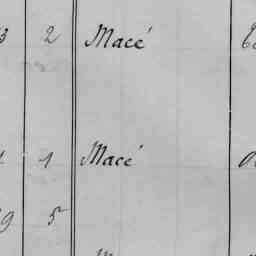 3 2 Macé
1 Macé
9 5